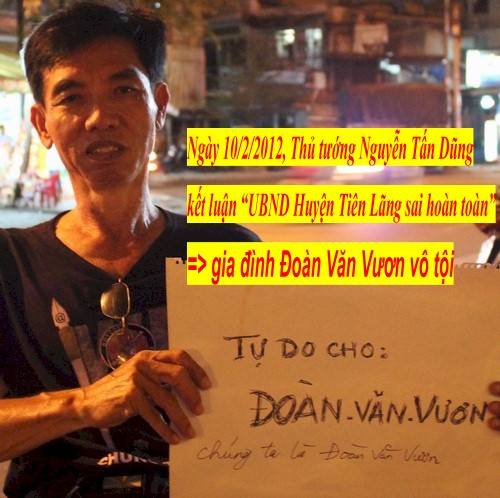 Ngày 10/2/2012, Thủ tướng Nguyễn Tấn Dũng
kết luận “UBND Huyện Tiên Lãng sai hoàn toàn”
=> gia đình Đoàn Văn Vươn vô tội
TỰ DO CHO:
ĐOÀN.VĂN.VƯƠN
chúng ta là Đoàn Văn Vươn